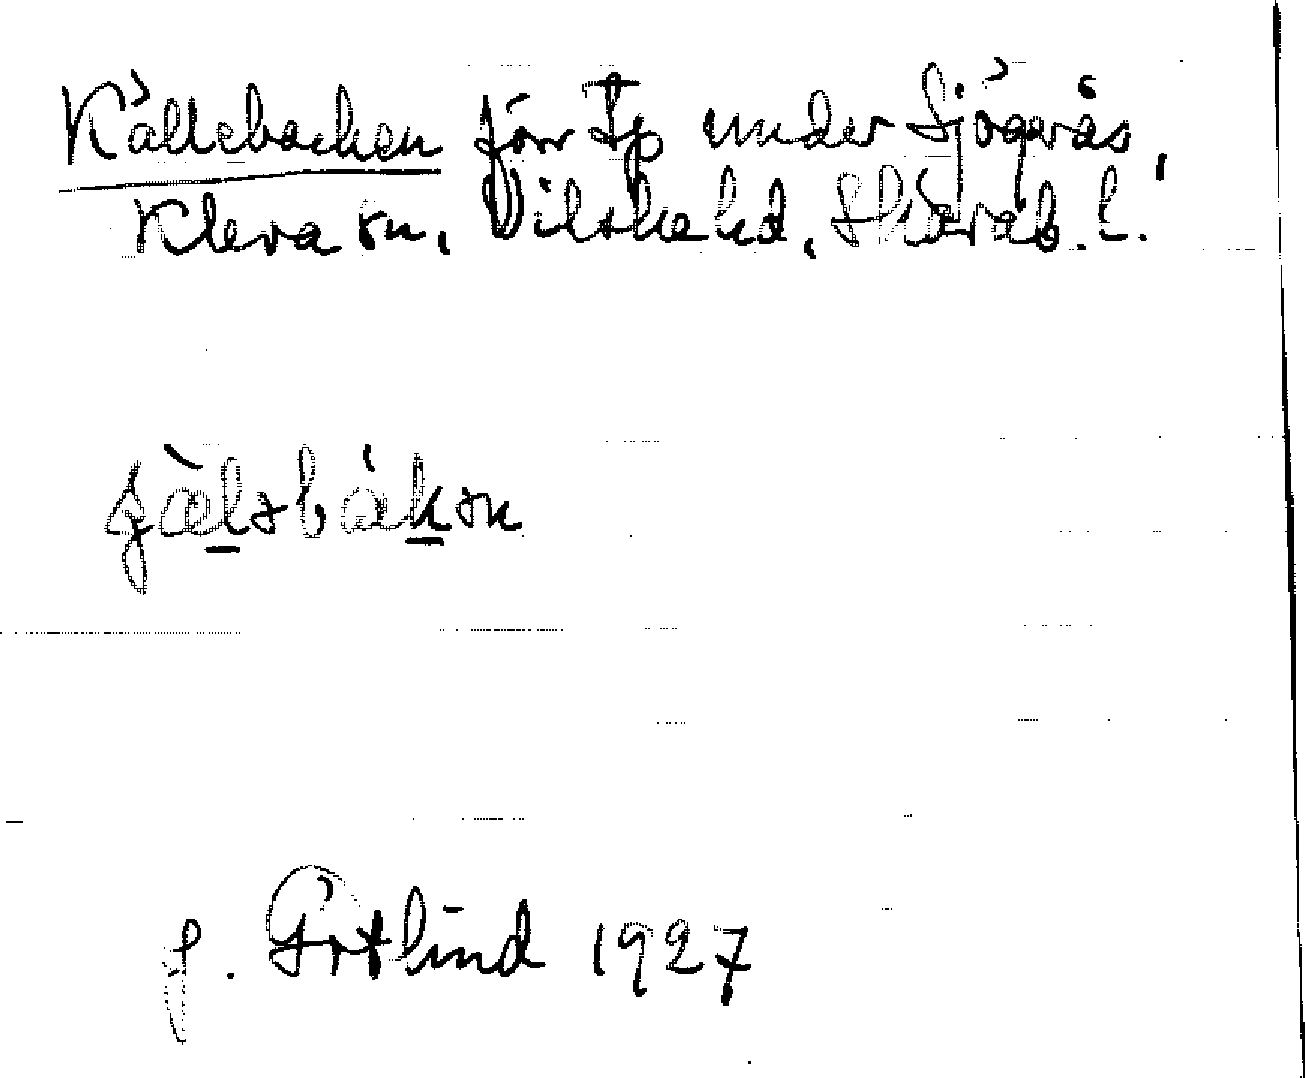 Källebacken förr Tp under Sjögerås,
Kleva sn, Vilske hd, Skarab. l.
J. Götlind 1927